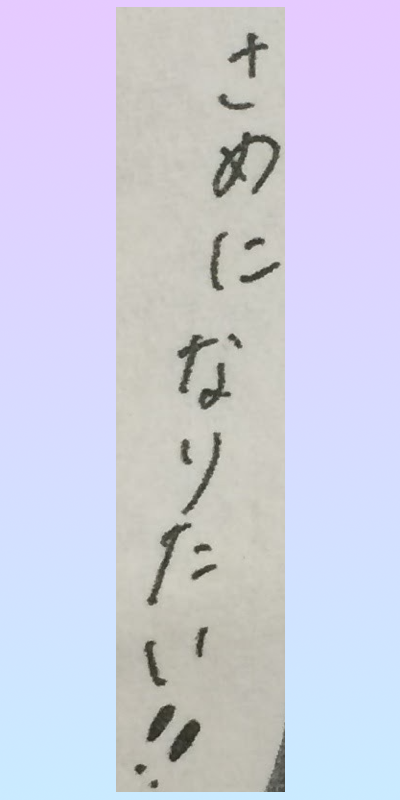 さめになりたい!!